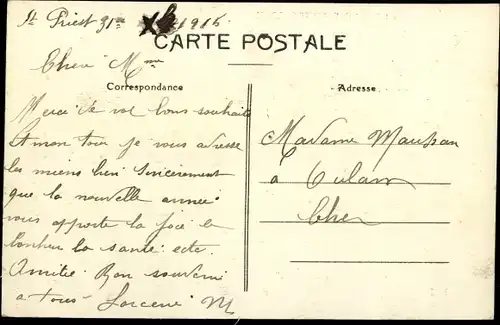 St Priest 31 1916
CARTE POSTALE
Chère Mme
Correspondance
Merci de vos bons souhaits
A mon tour je vous adresse
les miens bien sincèrement
que la nouvelle année
vous apporte la joie le
bonheur la santé ect.
Amitié Bon souvenir
a tous M
Adresse
Madame
a
Cher